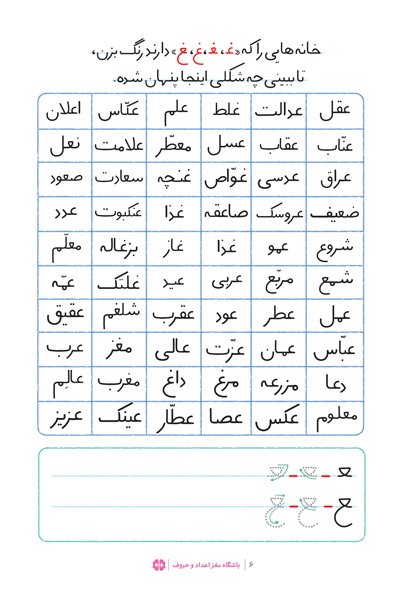 خانه‌هایی را که «غـ، ـغـ، ـغ، غ» دارند رنگ بزن،
تا ببینی چه شکلی اینجا پنهان شده.
عقل عدالت غلط علم عکّاس اعلان
عنّاب عقاب عسل معطّر علامت نعل
عراق عدسی غوّاص غنچه سعادت صعود
ضعیف عروسک صاعقه غذا عنکبوت عدد
شروع عمو غذا غاز بزغاله معلّم
شمع مربّع عربی عید غلتک عمّه
عمل عطر عود عقرب شلغم عقیق
عبّاس عمان عزّت عالی مغز عرب
دعا مزرعه مرغ داغ مغرب عالِم
معلوم عکس عصا عطّار عینک عزیز
۶ | باشگاه مغز اعداد و حروف